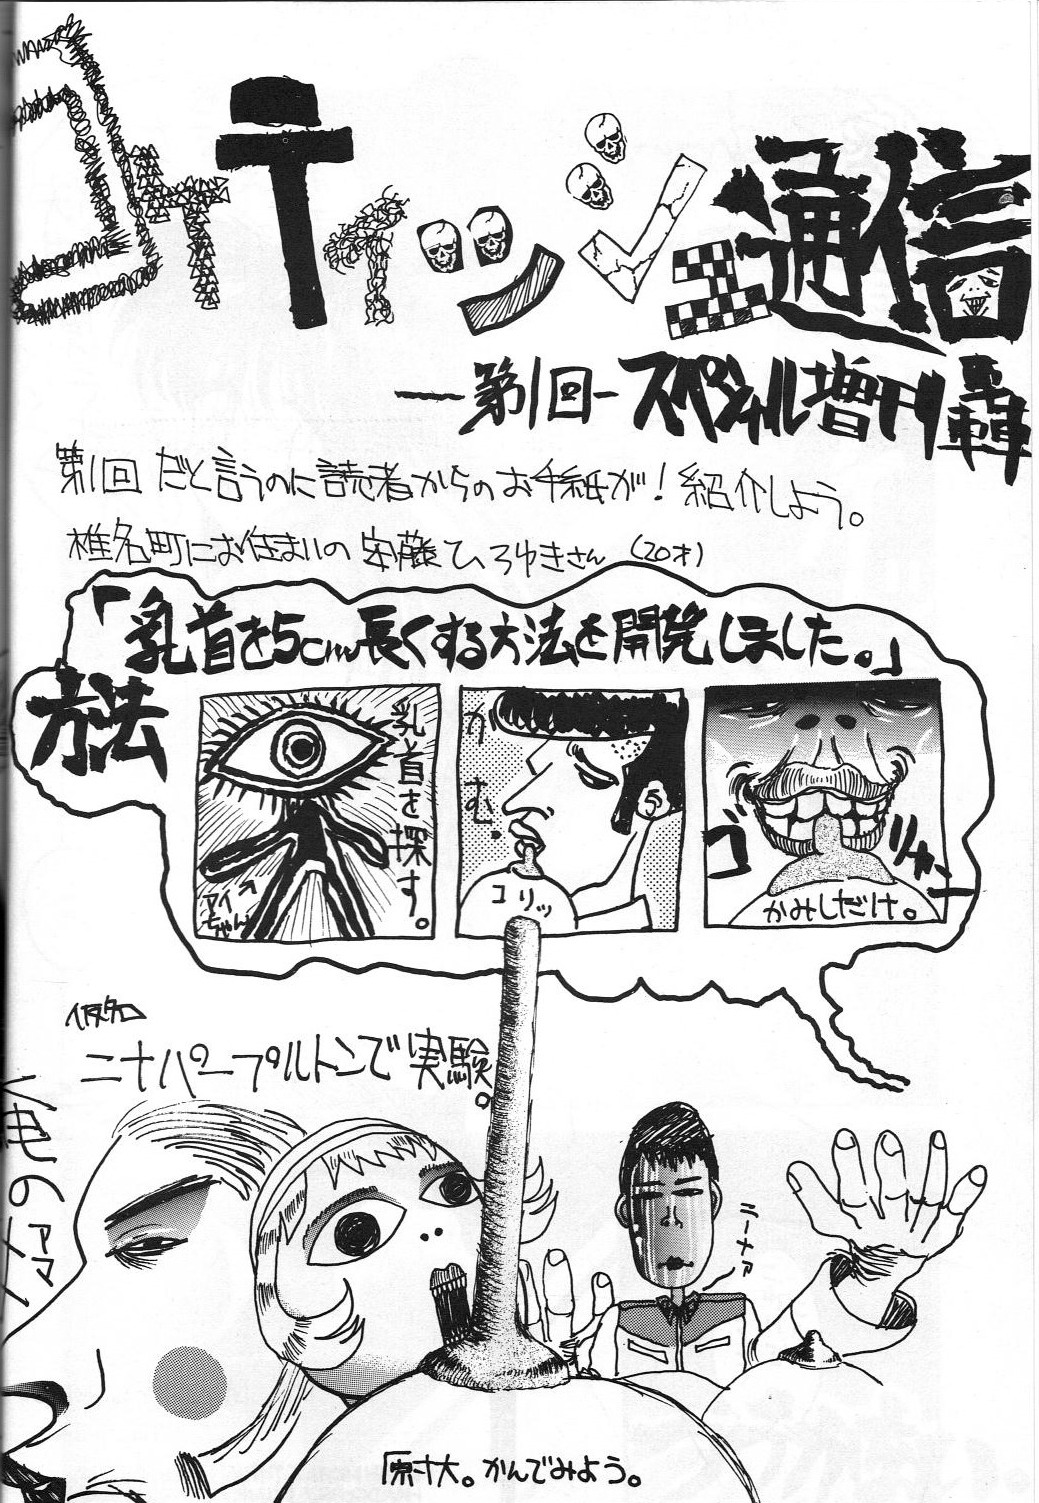 コナティッシュ通信
ー第1回ースペシャル増刊轟
第1回だと言うのに読者からのお手紙が！紹介しよう。
椎名町にお住まいの安藤ひろゆきさん（20才）
「乳首を5cm長くする方法を開発しました。」
方法
乳首を探す。
アイちゃん
かむ。
コリッ
ゴリッ
かみしだけ。
仮名
ニナパープルトンで実験。
ニーナァ
俺の
原寸大。かんでみよう。